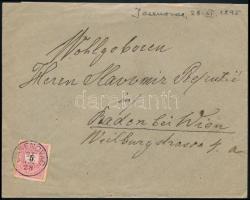 Jasenovac, 28 VI 1892
Wohlgeboren
Herrn Slavomir
Baden bei Wien
Weilburgstrasse 4 a
5
darabanth